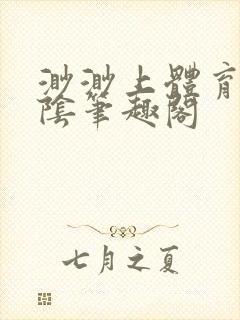 渺渺上體育
陰筆趣閣
七月之夏